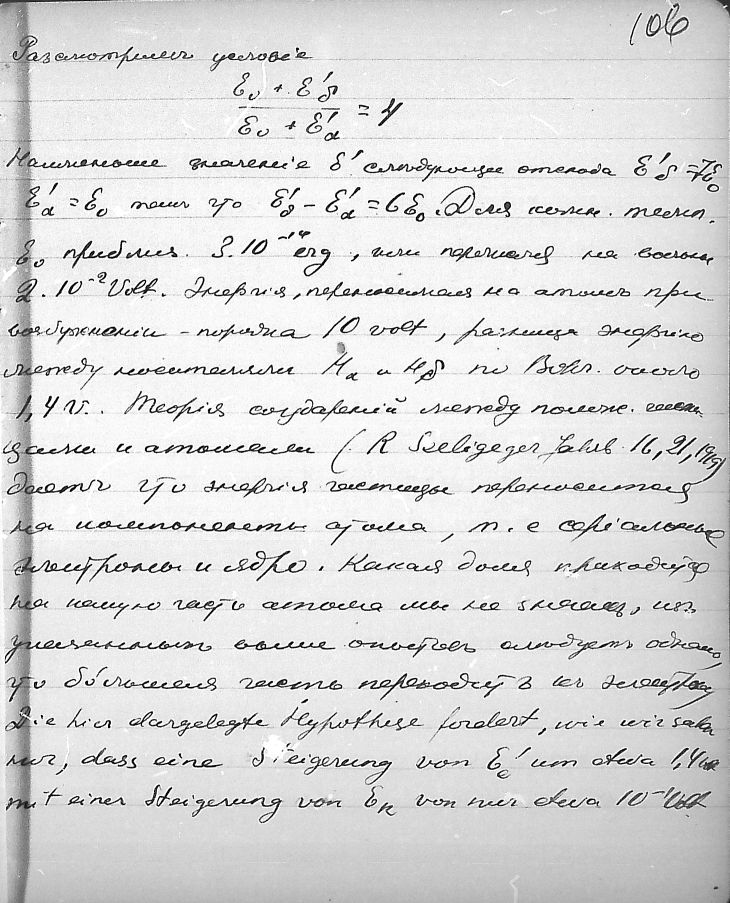 106
Разсмотримъ условіе
E₀ + E'δ
E₀ + E'α = 4
Наименьше значеніе δ' слѣдующее отсюда E'δ = 7E₀
E'α = E₀ такъ что E'δ – E'α = 6E₀. Для комн. темп.
E₀ приближ. 3.10⁻¹⁴ erg, или переходя на вольты
2.10⁻² Volt. Энергія, переносимая на атомъ при
возбужденіи – порядка 10 volt, разница энергіи
между носителями Hα и Hδ по Bohr. около
1,4 v. Теорія соудареній между полож. части-
цами и атомами (R Seeliger Jahrb. 16, 21, 1919)
даетъ что энергія частицы переносится
на компоненты атома, т. е серіальные
электроны и ядро. Какая доля приходится
на какую часть атома мы не знаемъ, изъ
указанныхъ выше опытовъ слѣдуетъ однако,
что бо́льшая часть переходитъ къ электрону
Die hier dargelegte Hypothese fordert, wie wir sahen
nur, dass eine Steigerung von E'e um etwa 1,4 volt
mit einer Steigerung von Eₖ von nur etwa 10⁻¹ Volt